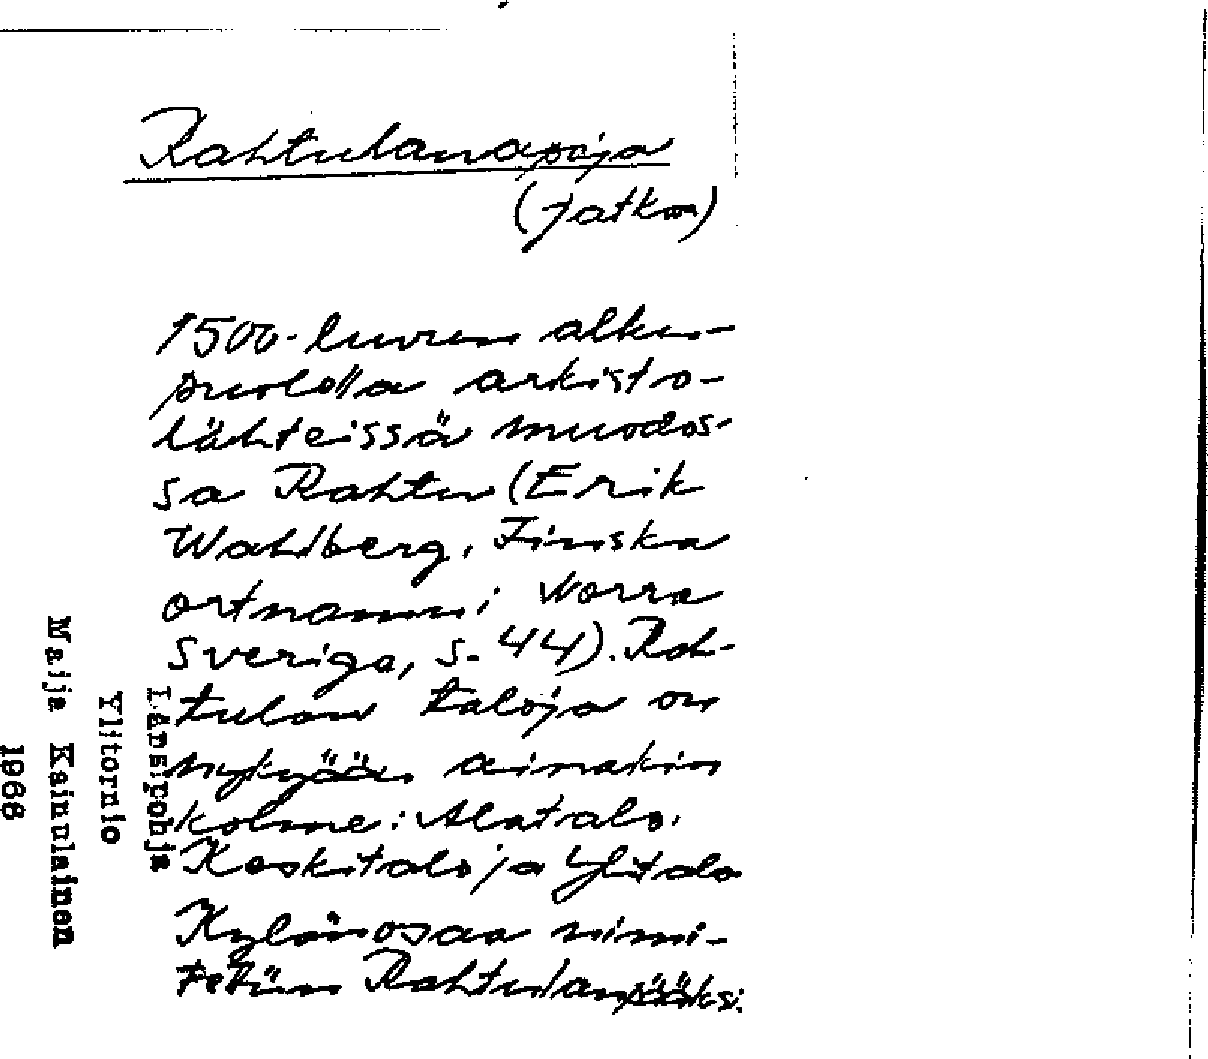 Rahtulanapaja
(jatkoa)
1500-luvun alku-
puolella arkisto-
lähteissä muodos-
sa Rahtu (Erik
Wahlberg, Finska
ortnamn i Norra
Sverige, s. 44). Rah-
tulan taloja on
nykyään ainakin
kolme: Alatalo,
Keskitalo ja Ylitalo
Kylänosaa nimi-
tetään Rahtulanpääksi.
Länsipohja
Ylitornio
Maija Kainulainen
1968